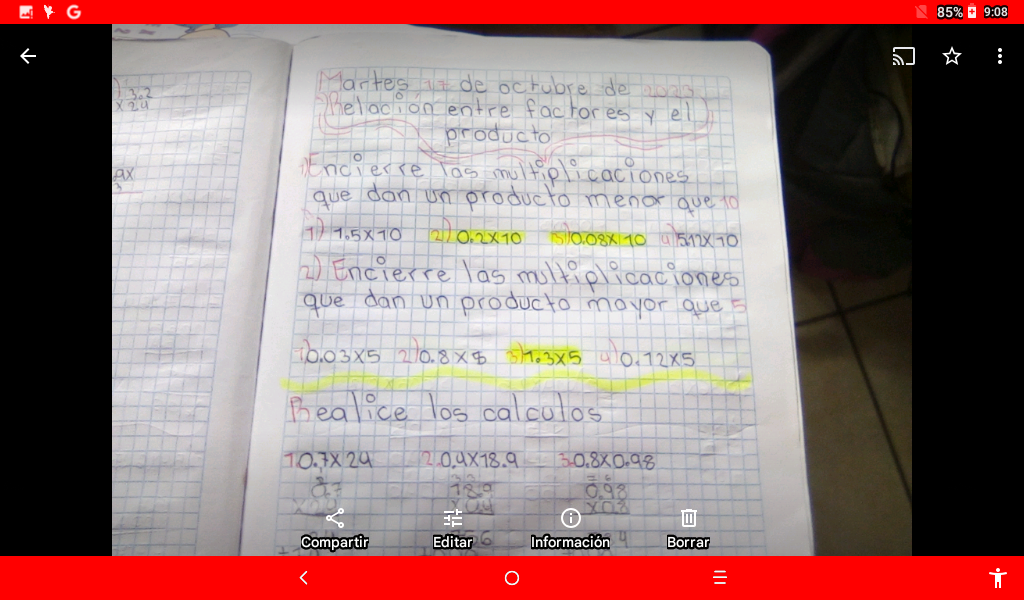 85% 9:08
3.2
x 24
Martes 17 de octubre de 2023
Relación entre factores y el
producto
1) Encierre las multiplicaciones
que dan un producto menor que 10
1) 1.5x10 2) 0.2x10 3) 0.08x10 4) 5.12x10
2) Encierre las multiplicaciones
que dan un producto mayor que 5
1) 0.03x5 2) 0.8x5 3) 1.3x5 4) 0.12x5
Realice los calculos
1. 0.7x24 2. 0.4x18.9 3. 0.8x0.98
0.7 18.9 0.98
x0.4 x0.8
Compartir Editar Información Borrar